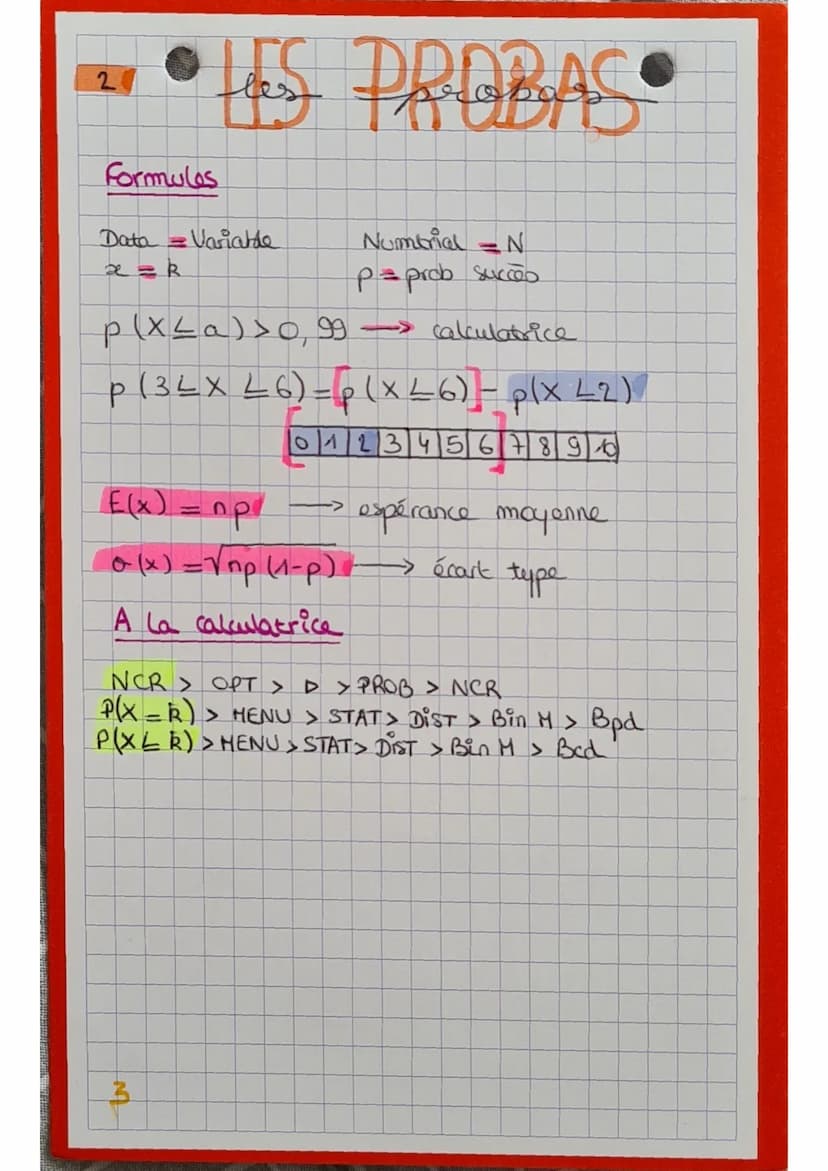 2
LES PROBAS
les probas
Formules
Data = Variable Numtrial = N
x = k p = prob succès
p(X ≤ a) > 0,99 → calculatrice
p(3 ≤ X ≤ 6) = [p(X ≤ 6)] - p(X ≤ 2)
[0 1 2 3 4 5 6] 7 8 9 10
E(x) = np → espérance moyenne
σ(x) = √np(1-p) → écart type
A la calculatrice
NCR > OPT > ▷ > PROB > NCR
P(X = k) > MENU > STAT > DiST > Bin M > Bpd
P(X ≤ k) > MENU > STAT > DiST > Bin M > Bcd
3